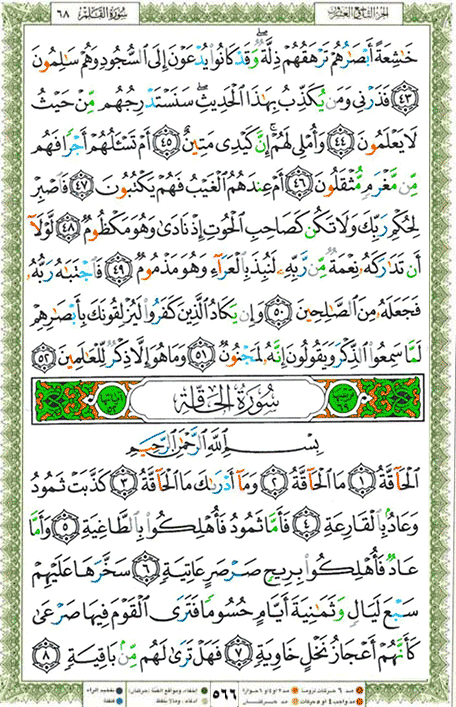 الجزء التاسع والعشرون سورة القلم ٦٨
خَٰشِعَةً أَبْصَٰرُهُمْ تَرْهَقُهُمْ ذِلَّةٌ ۖ وَقَدْ كَانُوا۟ يُدْعَوْنَ إِلَى ٱلسُّجُودِ وَهُمْ سَٰلِمُونَ
﴿٤٣﴾ فَذَرْنِى وَمَن يُكَذِّبُ بِهَٰذَا ٱلْحَدِيثِ ۖ سَنَسْتَدْرِجُهُم مِّنْ حَيْثُ
لَا يَعْلَمُونَ ﴿٤٤﴾ وَأُمْلِى لَهُمْ ۚ إِنَّ كَيْدِى مَتِينٌ ﴿٤٥﴾ أَمْ تَسْـَٔلُهُمْ أَجْرًا فَهُم
مِّن مَّغْرَمٍ مُّثْقَلُونَ ﴿٤٦﴾ أَمْ عِندَهُمُ ٱلْغَيْبُ فَهُمْ يَكْتُبُونَ ﴿٤٧﴾ فَٱصْبِرْ
لِحُكْمِ رَبِّكَ وَلَا تَكُن كَصَاحِبِ ٱلْحُوتِ إِذْ نَادَىٰ وَهُوَ مَكْظُومٌ ﴿٤٨﴾ لَّوْلَآ
أَن تَدَٰرَكَهُۥ نِعْمَةٌ مِّن رَّبِّهِۦ لَنُبِذَ بِٱلْعَرَآءِ وَهُوَ مَذْمُومٌ ﴿٤٩﴾ فَٱجْتَبَٰهُ رَبُّهُۥ
فَجَعَلَهُۥ مِنَ ٱلصَّٰلِحِينَ ﴿٥٠﴾ وَإِن يَكَادُ ٱلَّذِينَ كَفَرُوا۟ لَيُزْلِقُونَكَ بِأَبْصَٰرِهِمْ
لَمَّا سَمِعُوا۟ ٱلذِّكْرَ وَيَقُولُونَ إِنَّهُۥ لَمَجْنُونٌ ﴿٥١﴾ وَمَا هُوَ إِلَّا ذِكْرٌ لِّلْعَٰلَمِينَ ﴿٥٢﴾
سُورَةُ الحَاقَّة
بِسْمِ ٱللَّهِ ٱلرَّحْمَٰنِ ٱلرَّحِيمِ
ٱلْحَآقَّةُ ﴿١﴾ مَا ٱلْحَآقَّةُ ﴿٢﴾ وَمَآ أَدْرَىٰكَ مَا ٱلْحَآقَّةُ ﴿٣﴾ كَذَّبَتْ ثَمُودُ
وَعَادٌۢ بِٱلْقَارِعَةِ ﴿٤﴾ فَأَمَّا ثَمُودُ فَأُهْلِكُوا۟ بِٱلطَّاغِيَةِ ﴿٥﴾ وَأَمَّا
عَادٌ فَأُهْلِكُوا۟ بِرِيحٍ صَرْصَرٍ عَاتِيَةٍ ﴿٦﴾ سَخَّرَهَا عَلَيْهِمْ
سَبْعَ لَيَالٍ وَثَمَٰنِيَةَ أَيَّامٍ حُسُومًا فَتَرَى ٱلْقَوْمَ فِيهَا صَرْعَىٰ
كَأَنَّهُمْ أَعْجَازُ نَخْلٍ خَاوِيَةٍ ﴿٧﴾ فَهَلْ تَرَىٰ لَهُم مِّنۢ بَاقِيَةٍ ﴿٨﴾
٥٦٦